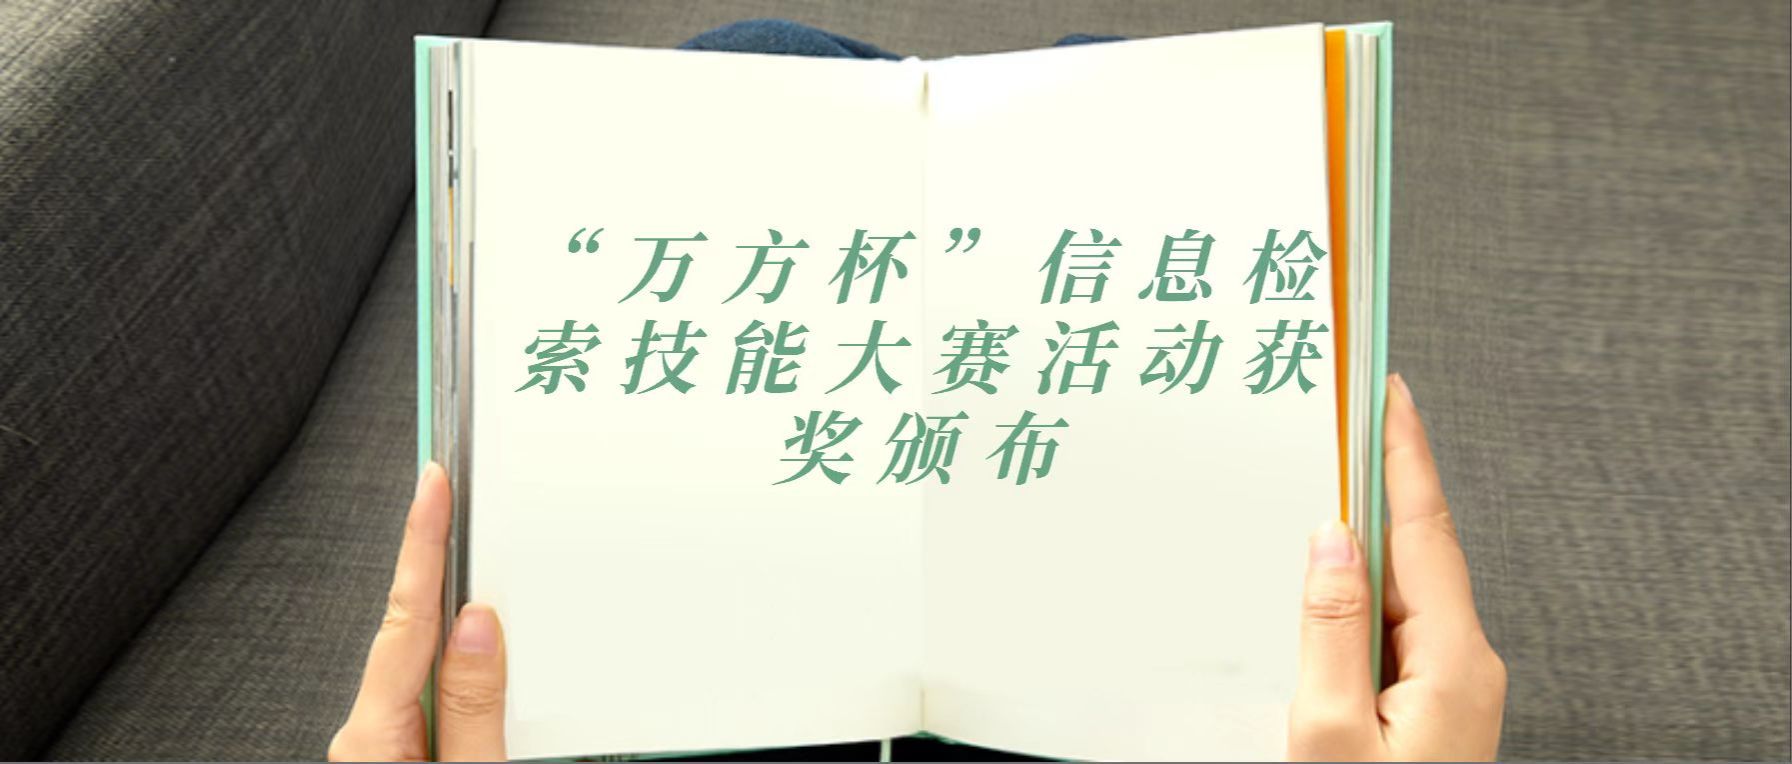 “万方杯”信息检
索技能大赛活动获
奖颁布